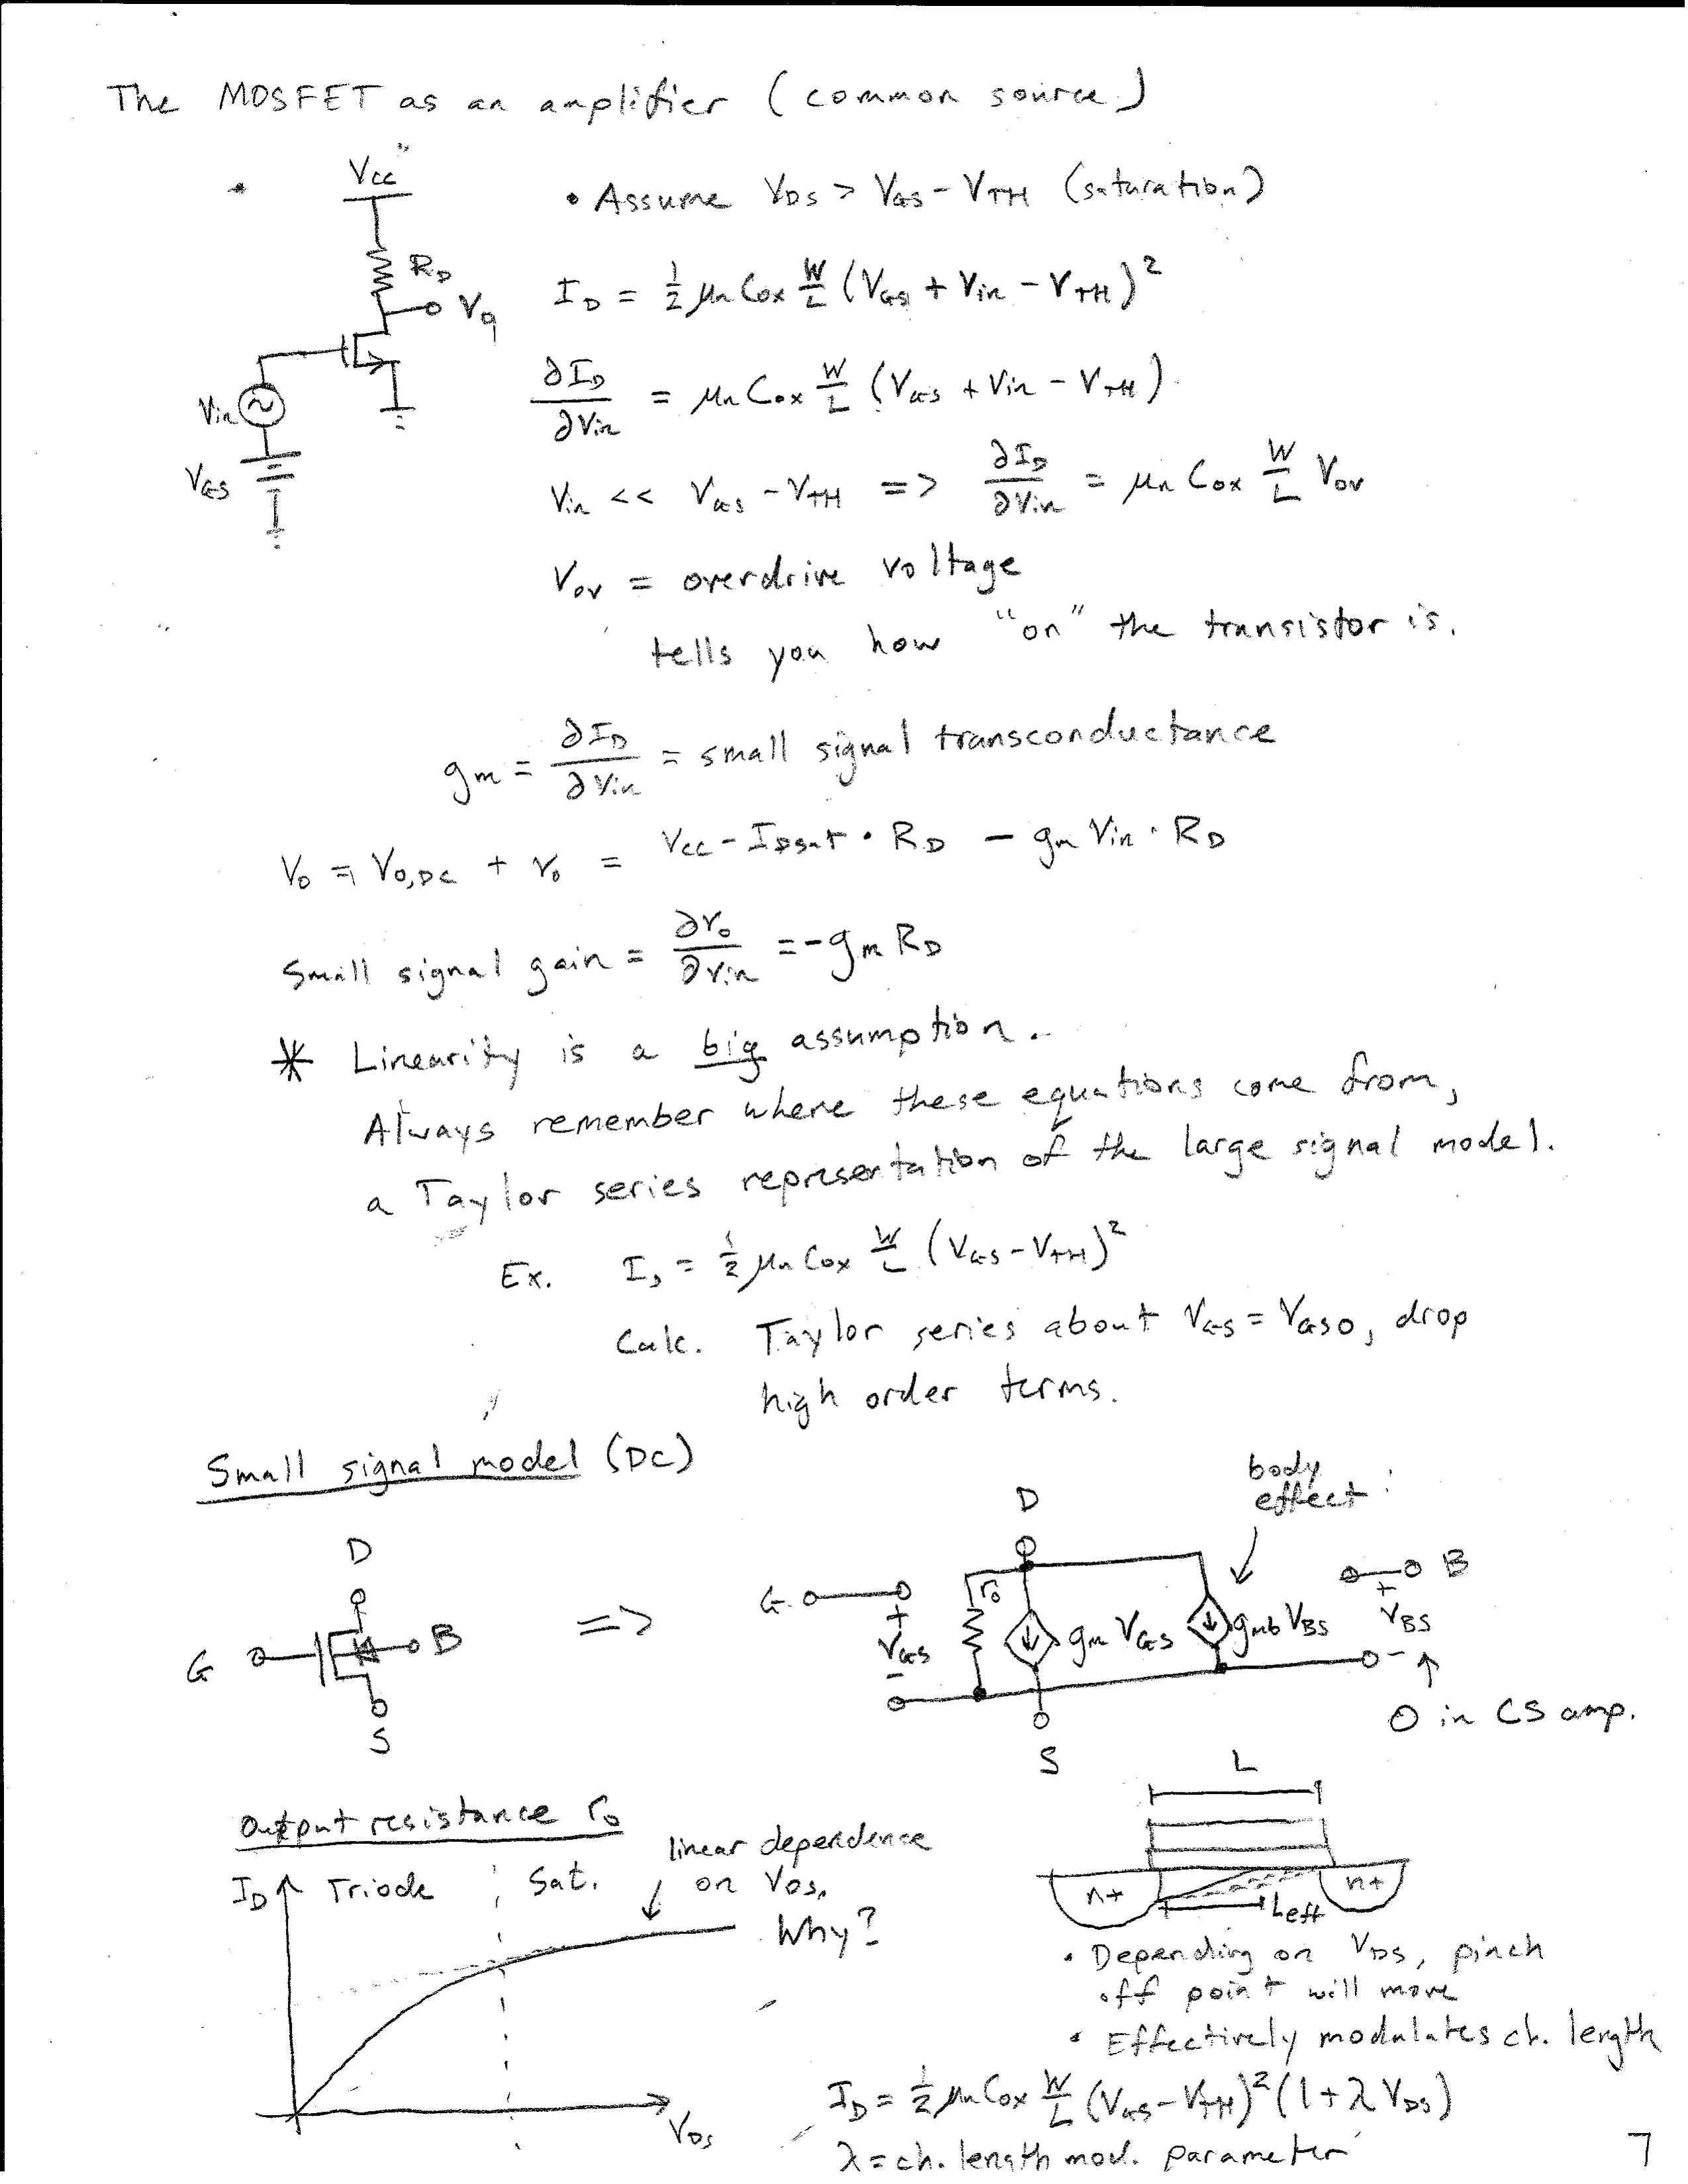 The MOSFET as an amplifier (common source)
Vcc
RD
Vo
Vin
VGS
• Assume VDS > VGS - VTH (saturation)
ID = 1/2 μn Cox W/L (VGS + Vin - VTH)²
∂ID/∂Vin = μn Cox W/L (VGS + Vin - VTH)
Vin << VGS - VTH => ∂ID/∂Vin = μn Cox W/L Vov
Vov = overdrive voltage
tells you how "on" the transistor is.
gm = ∂ID/∂Vin = small signal transconductance
Vo = Vo,DC + vo = Vcc - IDsat • RD - gm Vin • RD
Small signal gain = ∂vo/∂vin = -gm RD
* Linearity is a big assumption.
Always remember where these equations come from,
a Taylor series representation of the large signal model.
Ex. ID = 1/2 μn Cox W/L (VGS - VTH)²
Calc. Taylor series about VGS = VGSO, drop
high order terms.
Small signal model (DC)
D
G
B
S
=>
D
body
effect
G
+
VGS
-
ro
gm VGS
gmb VBS
B
+
VBS
-
0 in CS amp.
S
Output resistance ro
ID
Triode
Sat.
linear dependence
on VDS.
Why?
VDS
L
n+
n+
Leff
• Depending on VDS, pinch
off point will move
• Effectively modulates ch. length
ID = 1/2 μn Cox W/L (VGS - VTH)² (1 + λ VDS)
λ = ch. length mod. parameter
7